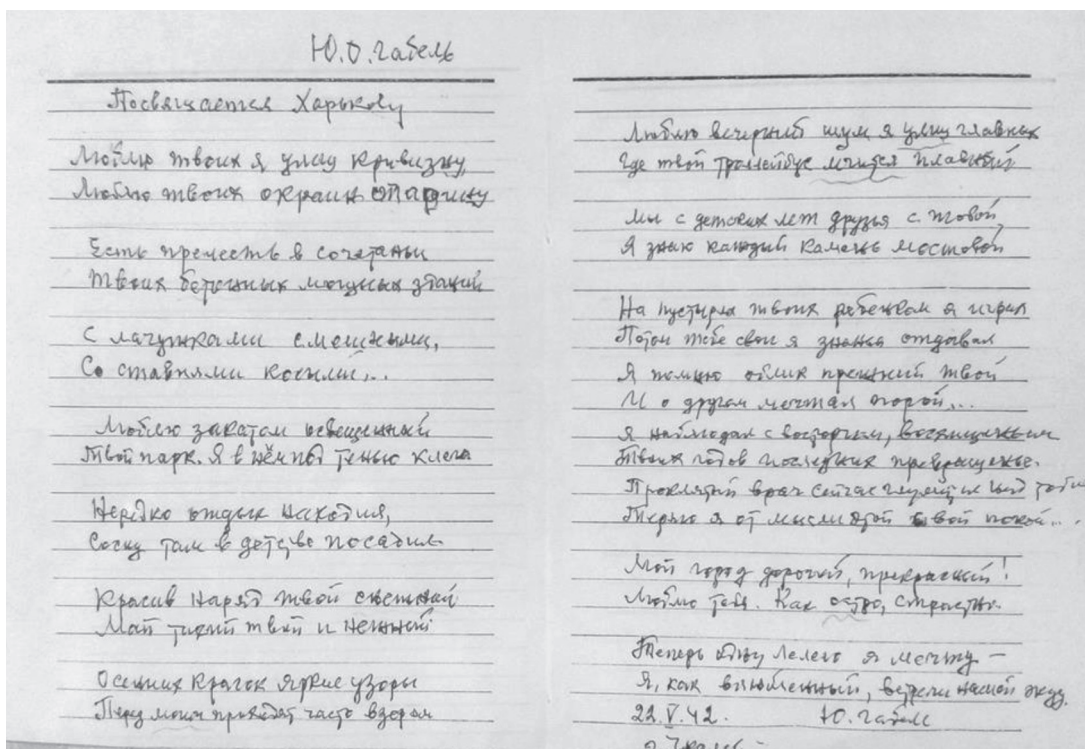 Ю.О. Габель
Посвящается Харькову
Люблю твоих я улиц кривизну,
Люблю твоих окраин старину
Есть прелесть в сочетаньи
Твоих бетонных мощных зданий
С лачужками смешными,
Со ставнями косыми...
Люблю закатом освещенный
Твой парк. Я в нём под тенью клена
Нередко отдых находил,
Сосну там в детстве посадил
Красив наряд твой снежный
Май тихий твой и нежный
Осенних красок яркие узоры
Перед моим проходят часто взором
Люблю вечерний шум я улиц главных
Где твой троллейбус мчится плавный
Мы с детских лет друзья с тобой
Я знаю каждый камень мостовой
На пустырях твоих ребенком я играл
Потом тебе свои я знанья отдавал
Я помню облик прежний твой
И о другом мечтал порой...
Я наблюдал с восторгом, восхищеньем
Твоих годов последних превращенье.
Проклятый враг сейчас глумится над тобой
Теряю я от мысли этой свой покой...
Мой город дорогой, прекрасный!
Люблю тебя. Как остро, страстно.
Теперь одну лелею я мечту –
Я, как влюбленный, встречи нашей жду.
22.V.42. Ю. Габель